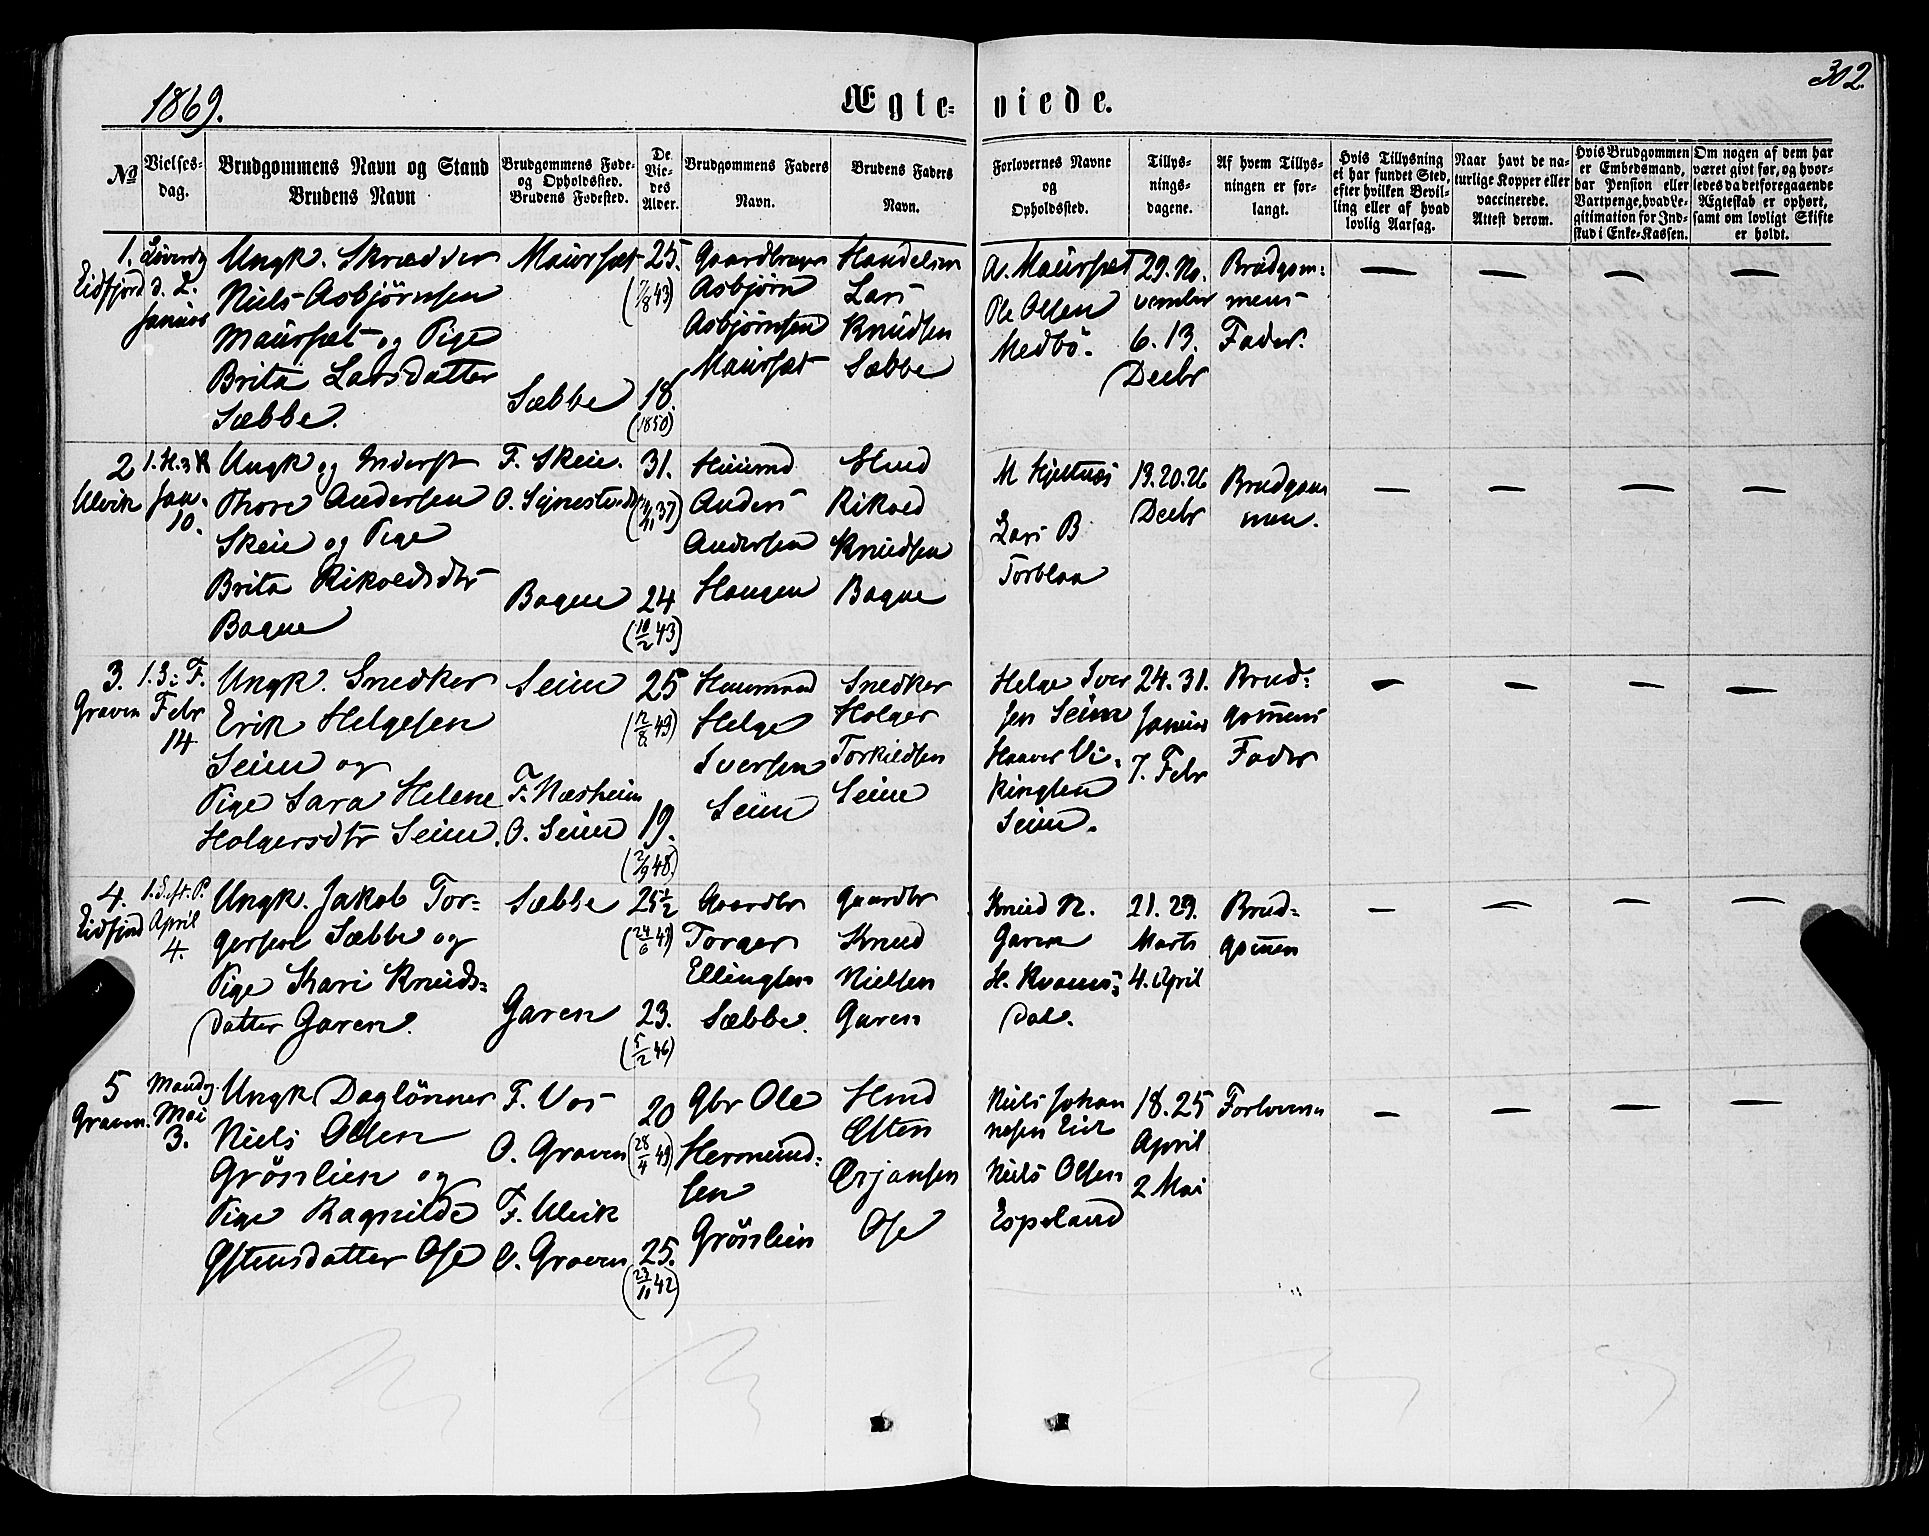 302
1869.
Ægte- viede.
No
Vielses-
dag.
Brudgommens Navn og Stand
Brudens Navn
Brudgommens Føde-
og Opholdssted.
Brudens Fødested.
De
Vie-
des
Alder.
Brudgommens Faders
Navn.
Brudens Faders
Navn.
Forlovernes Navne
og
Opholdssted.
Tillys-
nings-
dagene.
Af hvem Tillys-
ningen er for-
langt.
Hvis Tillysning
ei har fundet Sted,
efter hvilken Bevil-
ling eller af hvad
lovlig Aarsag.
Naar havt de na-
turlige Kopper eller
vaccinerede.
Attest derom.
Hvis Brudgommen
er Embedsmand,
har Pension eller
Vartpenge, hvad Le-
gitimation for Ind-
skud i Enke-Kassen.
Om nogen af dem har
været givt før, og hvor-
ledes da det foregaaende
Ægteskab er ophørt,
samt om lovligt Skifte
er holdt.
1.
Eidfjord
Løverdg
d. 2.
Januar
Ungk. Skrædder
Niels Asbjørnsen
Maursæt og Pige
Brita Larsdatter
Sæbbe.
Maursæt
Sæbbe
25.
(7/8 43)
18.
(1850)
Gaardbruger
Asbjørn
Asbjørnsen
Maursæt
Handelsm
Lars
Knudsen
Sæbbe
A. Maursæt
Ole Olsen
Medbö.
29. No-
vember
6. 13.
Decbr
Brudgom-
mens
Fader.
2
Ulvik
Jan.
10.
Ungk og Inderst
Thore Andersen
Skeie og Pige
Brita Rikoldsdtr
Bagne
F. Skeie.
Bagne
31.
24
(10/2 43)
Huusmd
Anders
Andersen
Haugen
Hmd
Rikold
Knudsen
Bagne
M Hjeltnæs
Lars B
Torblaa
13. 20. 26
Decbr
Brudgom
men.
3.
Graven
1. S. i F.
Febr
14
Ungk. Snedker
Erik Helgesen
Seim og
Pige Sara Helene
Holgersdtr Seim.
Seim
F. Næsheim
O. Seim
25
(12/8 43)
19.
(2/9 48)
Huusmand
Helge
Iversen
Seim
Snedker
Holger
Torkildsen
Seim
Helge Iver
sen Seim
Haaver Vi-
kingsen
Seim.
24. 31.
Januar
7. Febr
Brud-
gom̄ens
Fader
4.
Eidfjord
1. S. eft. P.
April
4.
Ungk. Jakob Tor-
gersen Sæbbe og
Pige Kari Knuds-
datter Garen.
Sæbbe
Garen
25 1/2
(24/6 43)
23.
(5/2 46)
Gaardbr
Torger
Ellingsen
Sæbbe.
Gaardbr
Knud
Nielsen
Garen
Knud N.
Garen
H. Kvams-
dal.
21. 29.
Marts
4. April
Brud-
gom̄en
5
Graven.
Mandg.
Mai
3.
Ungk Daglönner
Niels Olsen
Grönlien og
Pige Ragnilde
Østensdatter Ose
F. Vos
O. Graven
F. Ulvik
O. Graven
20
(28/4 49)
25.
(23/11 42)
Gbr Ole
Hermund-
sen
Grönlien
Hmd
Østen
Ørjansen
Ose
Niels Johan
nesen Eide
Niels Olsen
Espeland
18. 25
April
2 Mai
Forloveren